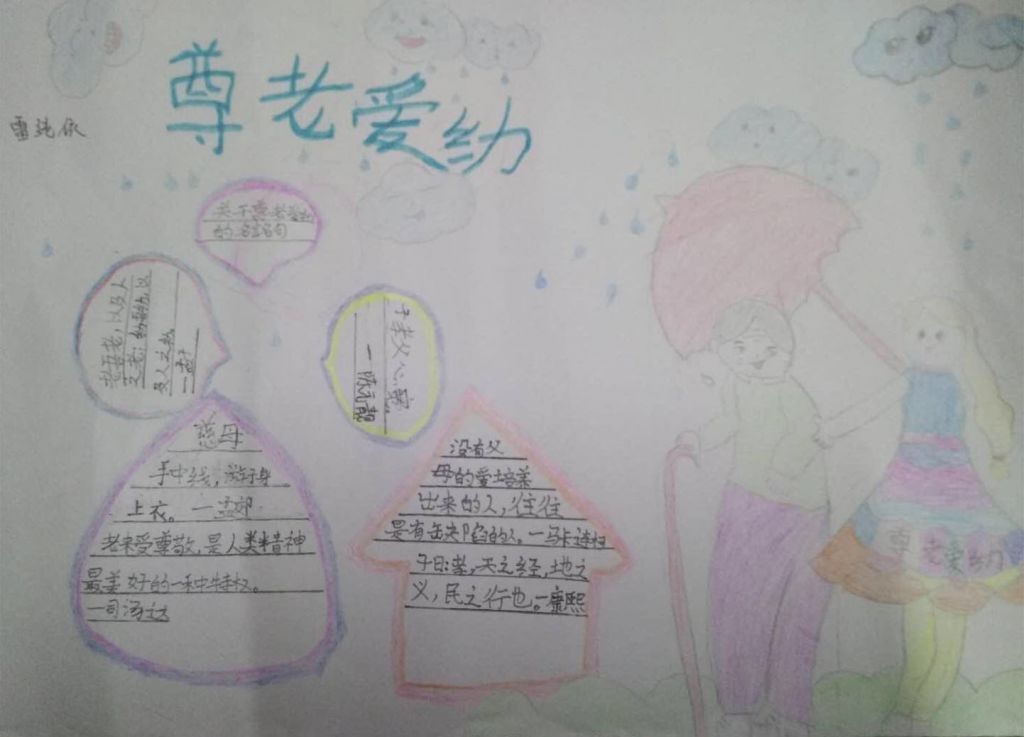 尊老爱幼
雷纯依
关于尊老爱幼
的名言名句
老吾老，以及人
之老；幼吾幼，以
及人之幼。
—孟子
子孝父心宽。
—陈元靓
慈母
手中线，游子身
上衣。—孟郊
老来受尊敬，是人类精神
最美好的一种特权。
—司汤达
没有父
母的爱培养
出来的人，往往
是有缺陷的人。—马卡连柯
子曰：孝，天之经，地之
义，民之行也。—康熙
尊老爱幼